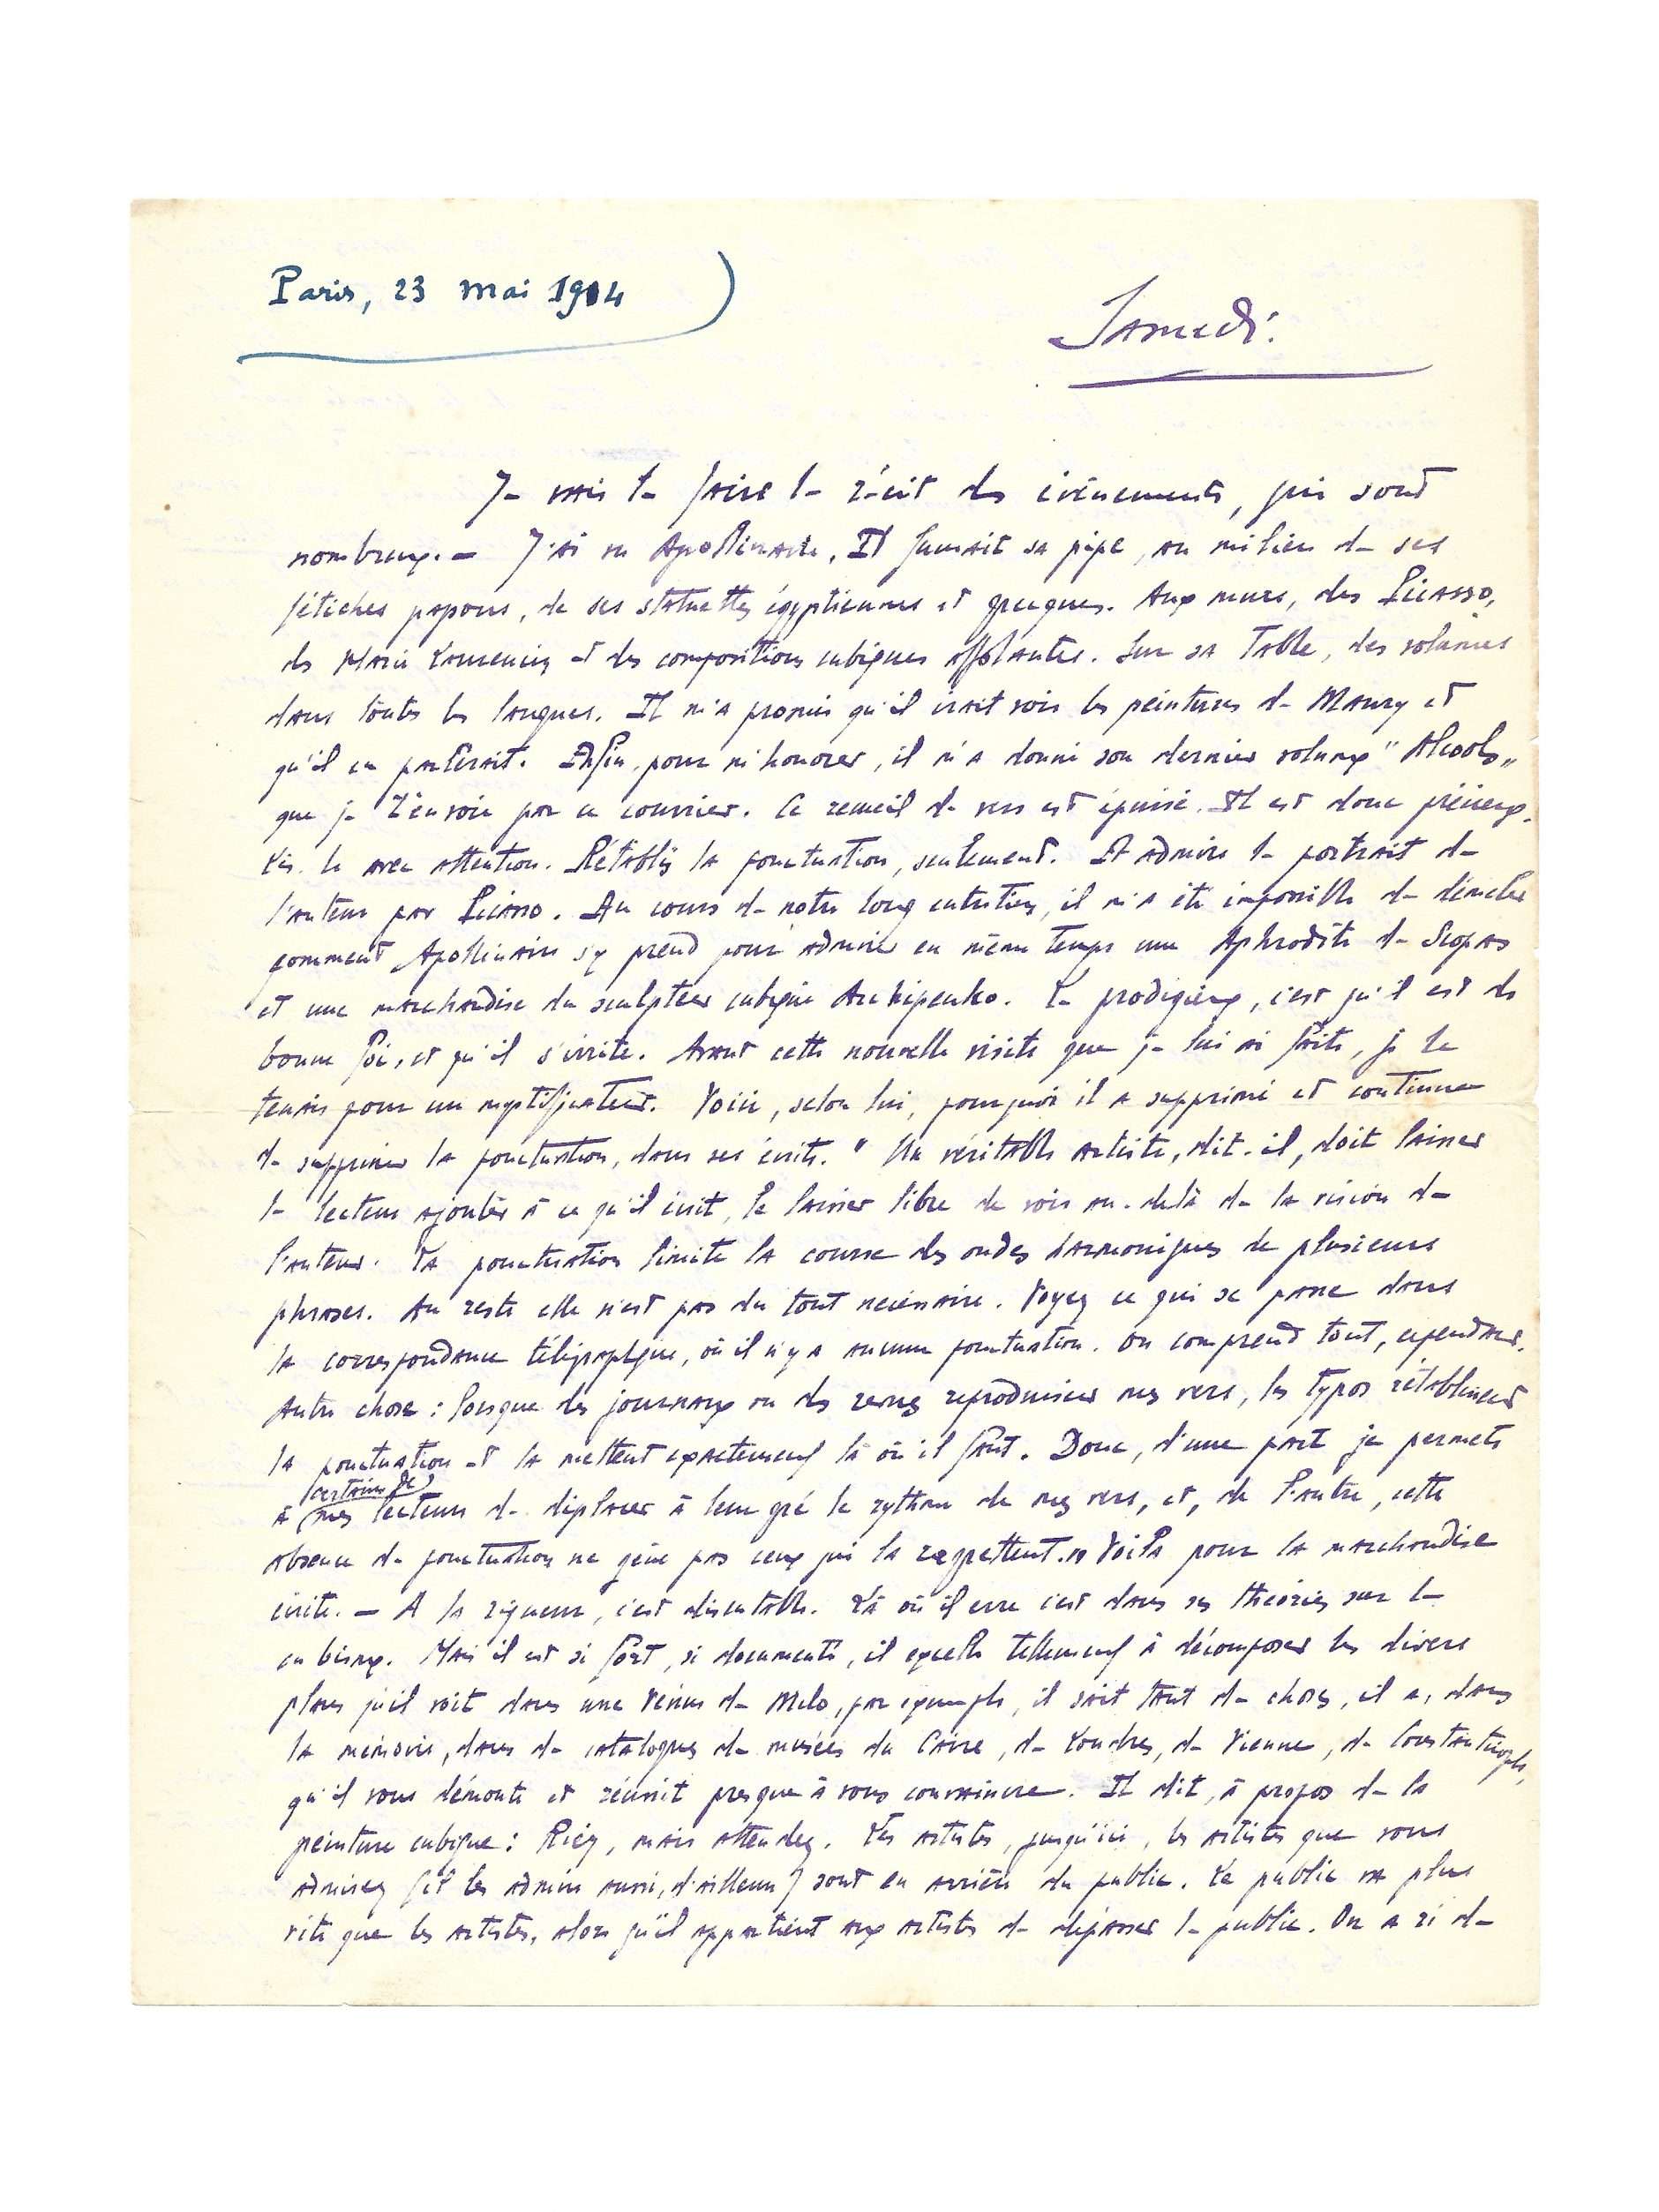 Paris, 23 mai 1914
Samedi.
Je vais te faire le récit des événements, qui sont
nombreux. — J'ai vu Apollinaire. Il fumait sa pipe, au milieu de ses
fétiches papous, de ses statuettes égyptiennes et grecques. Aux murs, des Picasso,
des Marie Laurencin et des compositions cubiques affolantes. Sur sa table, des volumes
dans toutes les langues. Il m'a promis qu'il irait voir les peintures de Maury et
qu'il en parlerait. Enfin, pour m'honorer, il m'a donné son dernier volume "Alcools"
que je t'envoie par ce courrier. Ce recueil de vers est épuisé. Il est donc précieux.
Lis-le avec attention. Rétablis la ponctuation, seulement. Et admire le portrait de
l'auteur par Picasso. Au cours de notre long entretien, il m'a été impossible de démêler
comment Apollinaire s'y prend pour admirer en même temps une Aphrodite de Scopas
et une marchandise du sculpteur cubique Archipenko. Le prodigieux, c'est qu'il est de
bonne foi, et qu'il s'irrite. Avant cette nouvelle visite que je lui ai faite, je le
tenais pour un mystificateur. Voici, selon lui, pourquoi il a supprimé et continue
de supprimer la ponctuation, dans ses écrits. " Un véritable artiste, dit-il, doit laisser
le lecteur ajouter à ce qu'il écrit, le laisser libre de voir au-delà de la vision de
l'auteur. La ponctuation limite la course des ondes harmoniques de plusieurs
phrases. Au reste elle n'est pas du tout nécessaire. Voyez ce qui se passe dans
la correspondance télégraphique, où il n'y a aucune ponctuation. On comprend tout, cependant.
Autre chose : lorsque des journaux ou des revues reproduisent mes vers, les typos rétablissent
la ponctuation et la mettent exactement là où il faut. Donc, d'une part je permets
à (certains de) mes lecteurs de déplacer à leur gré le rythme de mes vers, et, de l'autre, cette
absence de ponctuation ne gêne pas ceux qui la regrettent. » Voilà pour la marchandise
écrite. — A la rigueur, c'est discutable. Là où il erre c'est dans ses théories sur le
cubisme. Mais il est si fort, si documenté, il excelle tellement à décomposer les divers
plans qu'il voit dans une Vénus de Milo, par exemple, il sait tant de choses, il a, dans
la mémoire, tant de catalogues de musées du Caire, de Londres, de Vienne, de Constantinople,
qu'il vous démonte et réussit presque à vous convaincre. Il dit, à propos de la
peinture cubique : Riez, mais attendez. Les artistes, jusqu'ici, les artistes que vous
admirez (et les admire aussi, d'ailleurs) sont en arrière du public. Le public va plus
vite que les artistes, alors qu'il appartient aux artistes de dépasser le public. On a ri de